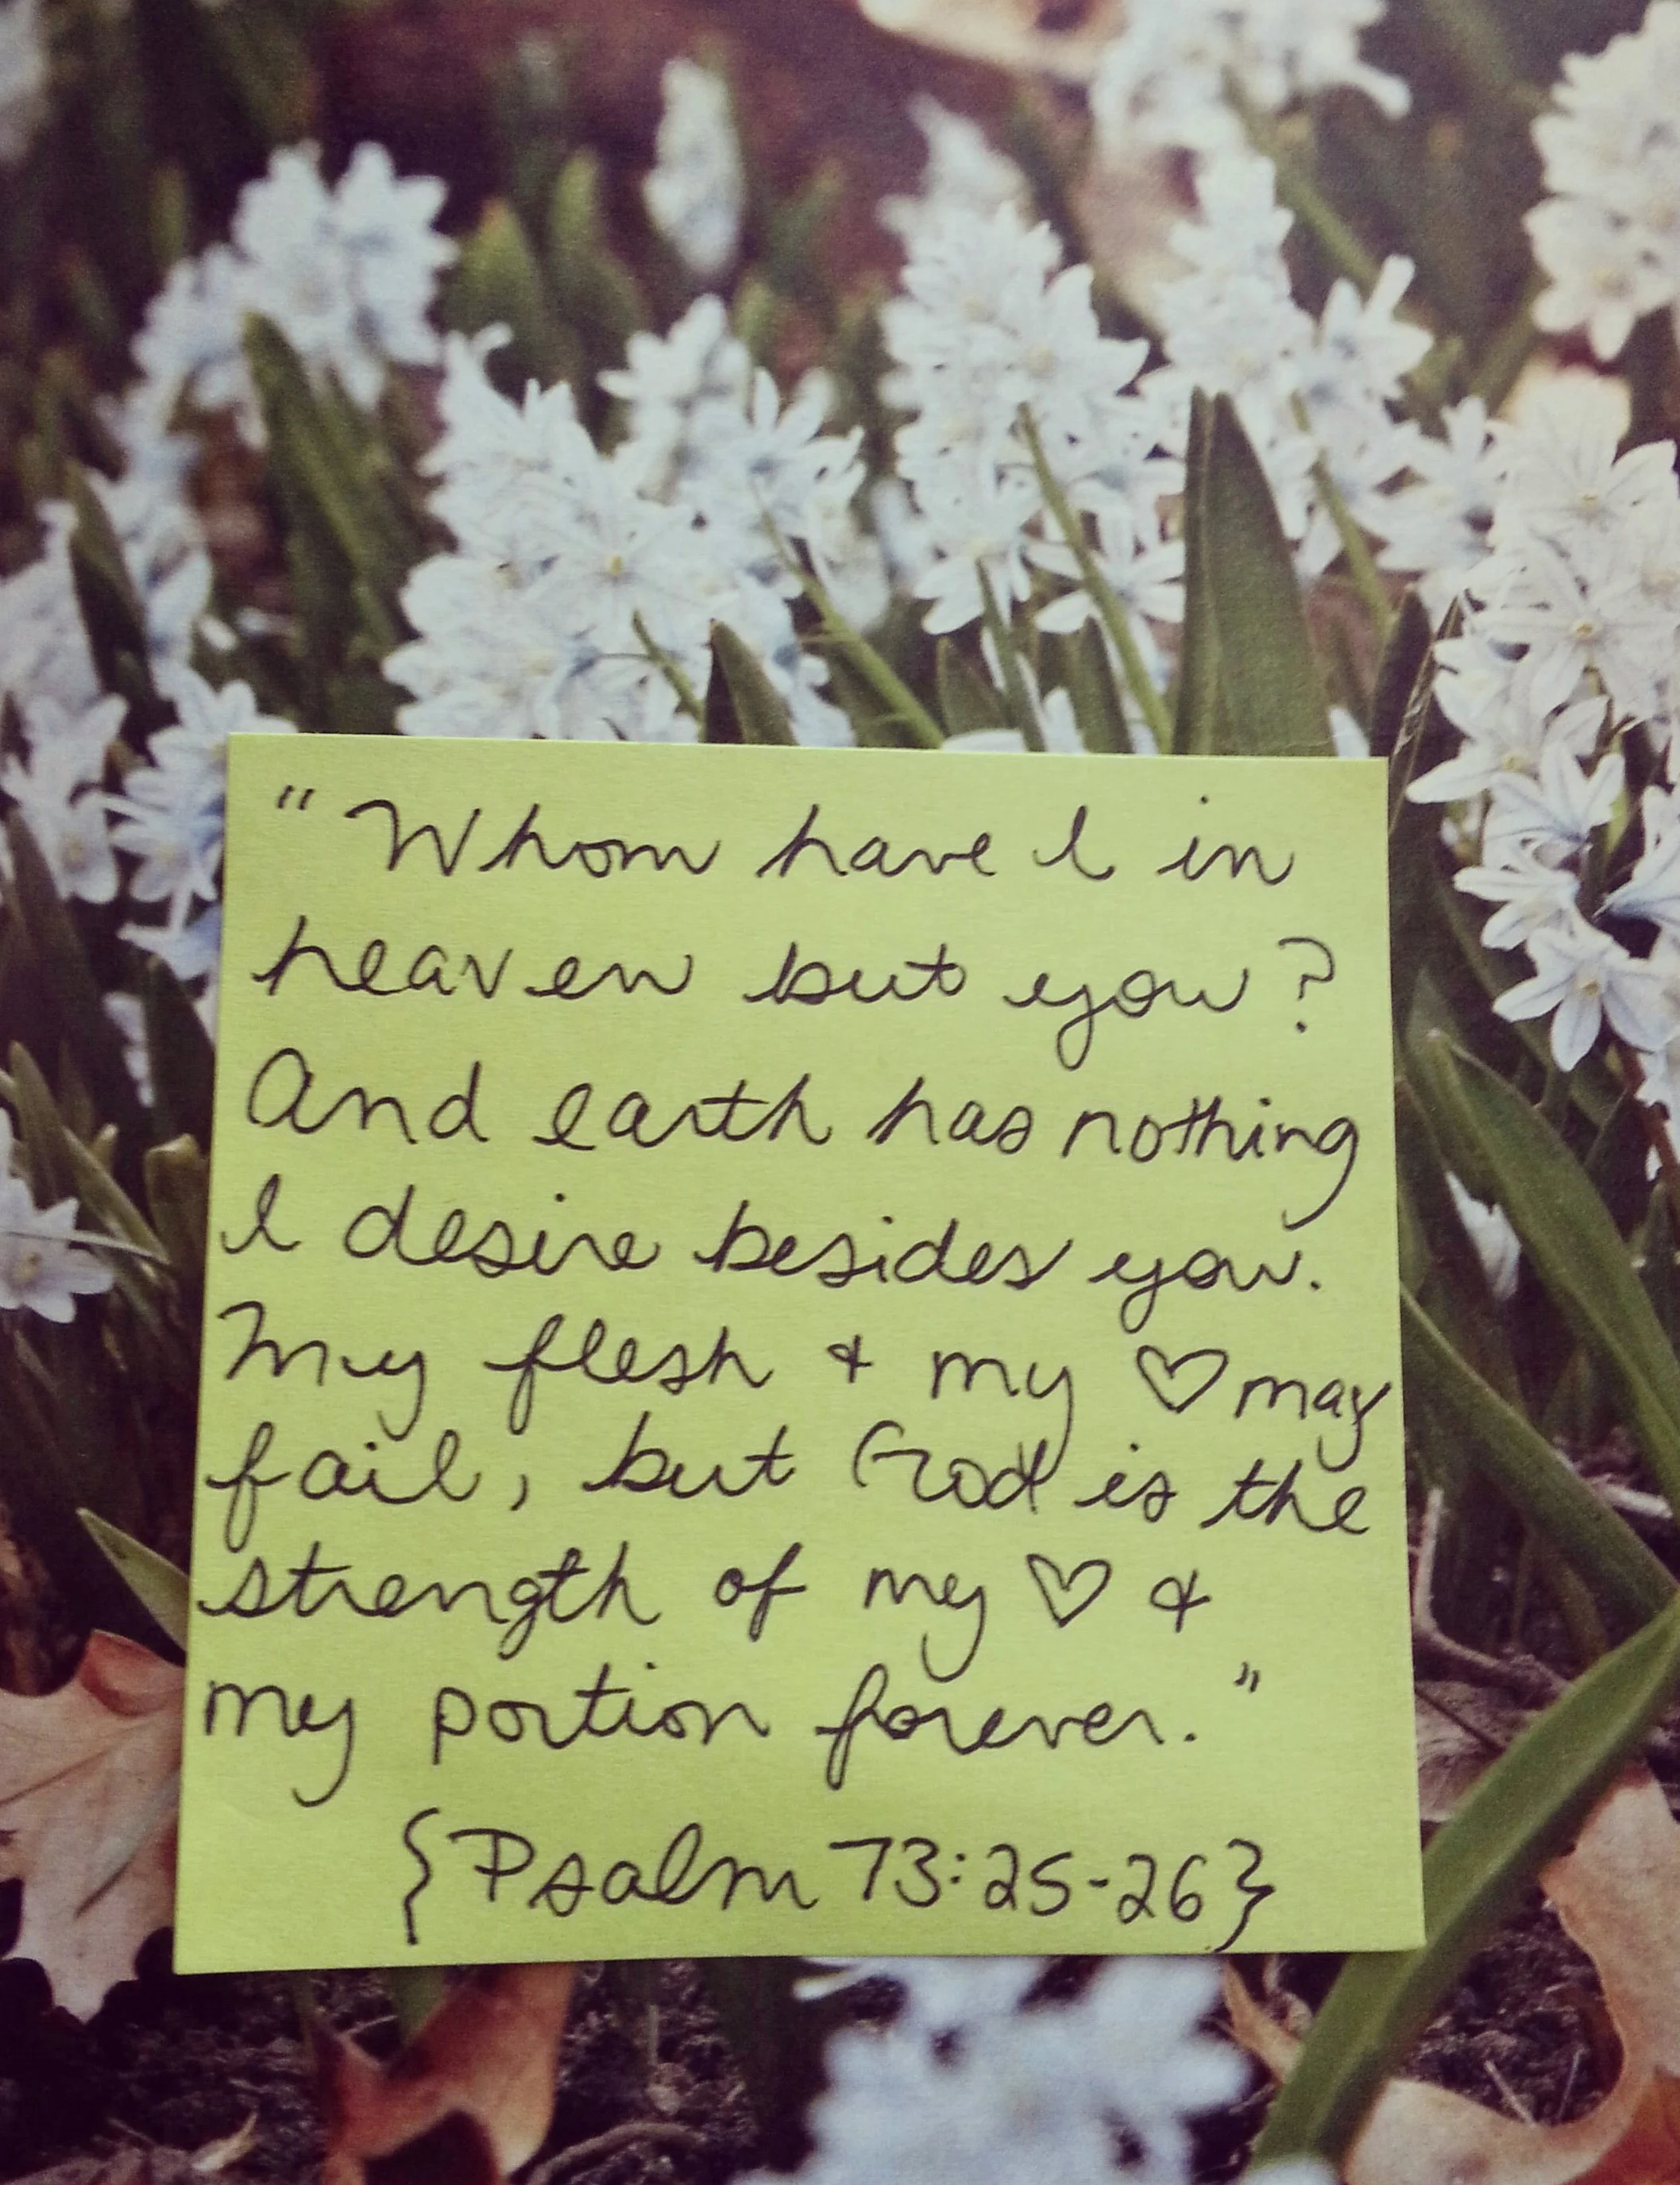 "Whom have I in
heaven but you?
And earth has nothing
I desire besides you.
My flesh & my ♡ may
fail, but God is the
strength of my ♡ &
my portion forever."
{Psalm 73:25-26}